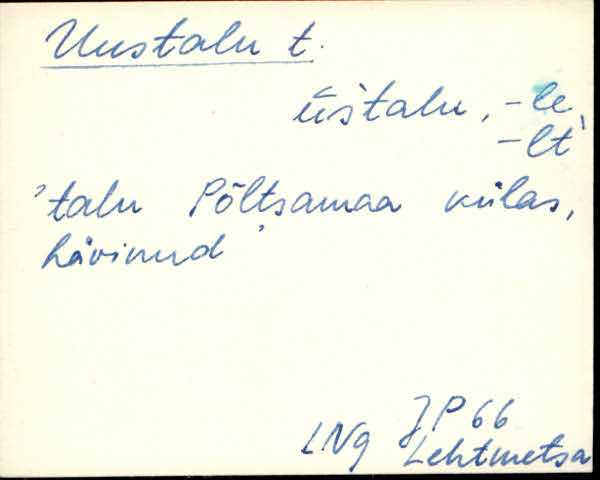 Uustalu t.
üštalu, -le,
-lt
'talu Põltsamaa külas,
hävinud'
JP 66
LNg Lehtmetsa